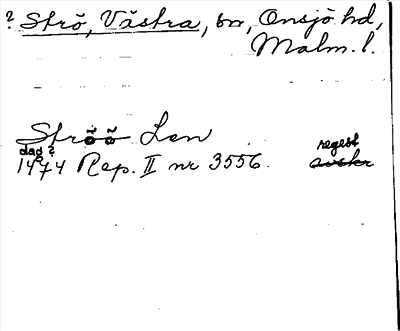 ? Strö, Västra, by, Onsjö hd,
Malm. l.
Ströö Len
dag ?
1474 Rep. II nr 3556. regest
avskr